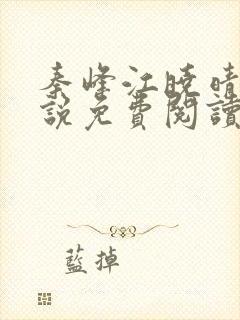 秦峰江曉晴
說免費閱讀
藍掉